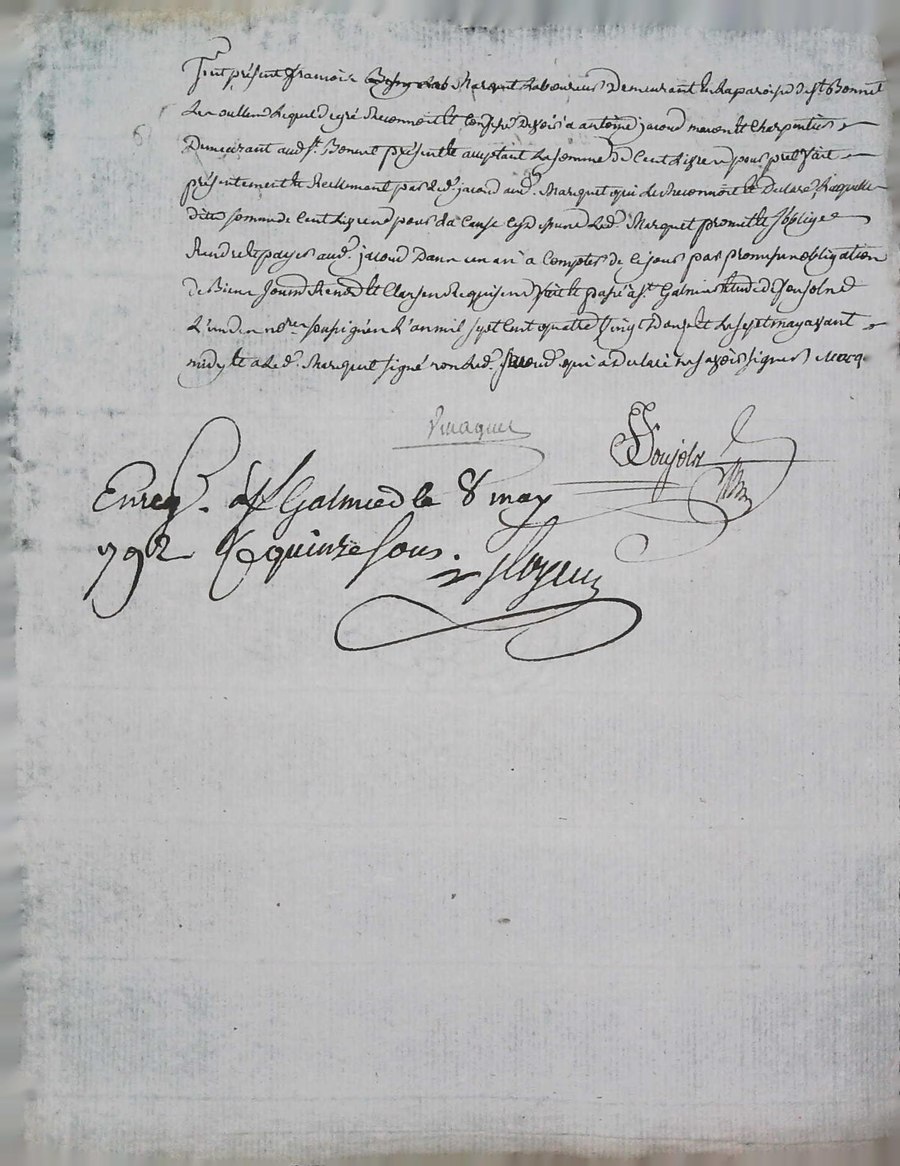 Fut présent françois Marquet Laboureur Demeurant en la paroisse de st Bonnet
Les oulles Lequel de gré Reconnoit et Confesse Devoir a antoine jacoud maçon et Charpentier
Demeurant aud. st. Bonnet présent et acceptant La somme de Cent Livres pour prêt fait
présentement et Réellement par led. jacoud aud. Marquet qui Le Reconnoit et Declare Laquelle
ditte somme de Cent Livres pour la Cause cy dessus Led. Marquet promet et s'oblige
Rendre et payer aud. jacoud Dans un an a Compter de Ce jour par promesse obligation
de Biens Soumis Renonc. et Clauses Requises fait et passé a st. Galmier Etude de Soujols
L'un des nores soussignés L'an mil sept cent quatre vingt Douze et Le sept may avant
midy et a Led. Marquet signé non Led. jacoud qui a declaré ne savoir signer
Maquet
Soujols
Enreg. à st Galmier le 8 may
1792 Reçu quinze sous.